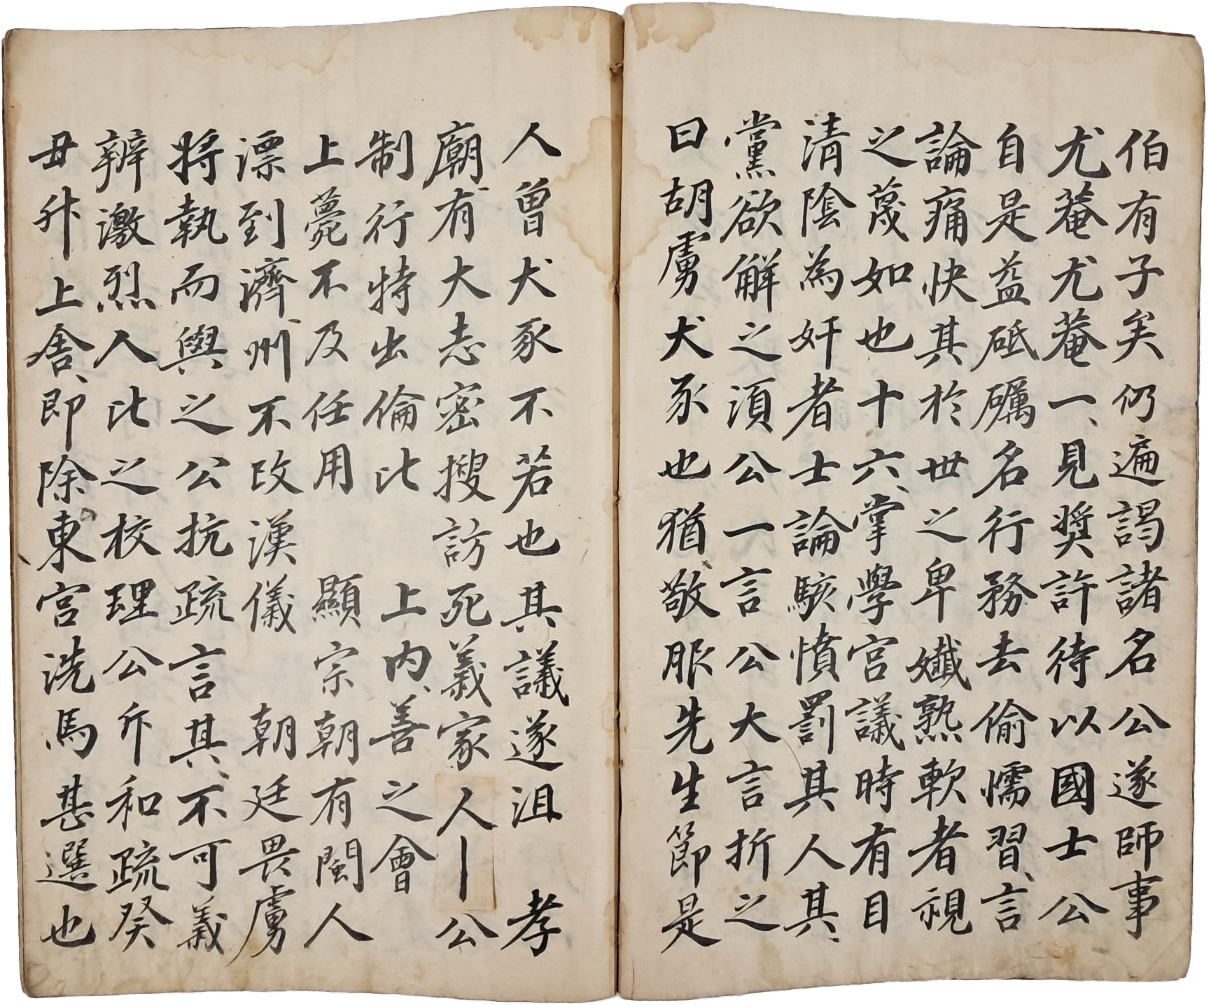 伯有子矣仍遍謁諸名公遂師事
尤菴尤菴一見奬許待以國士公
自是益砥礪名行務去偷懦習言
論痛快其於世之卑孅熟軟者視
之蔑如也十六掌學宮議時有目
清陰為奸者士論駭憤罰其人其
黨欲解之須公一言公大言折之
曰胡虜犬豕也猶敬服先生節是
人曾犬豕不若也其議遂沮　孝
廟有大志密搜訪死義家人丨公
制行特出倫比　上內善之會
上薨不及任用　顯宗朝有閩人
漂到濟州不改漢儀　朝廷畏虜
將執而與之公抗疏言其不可義
辨激烈人比之校理公斥和疏癸
丑升上舍即除東宮洗馬甚選也